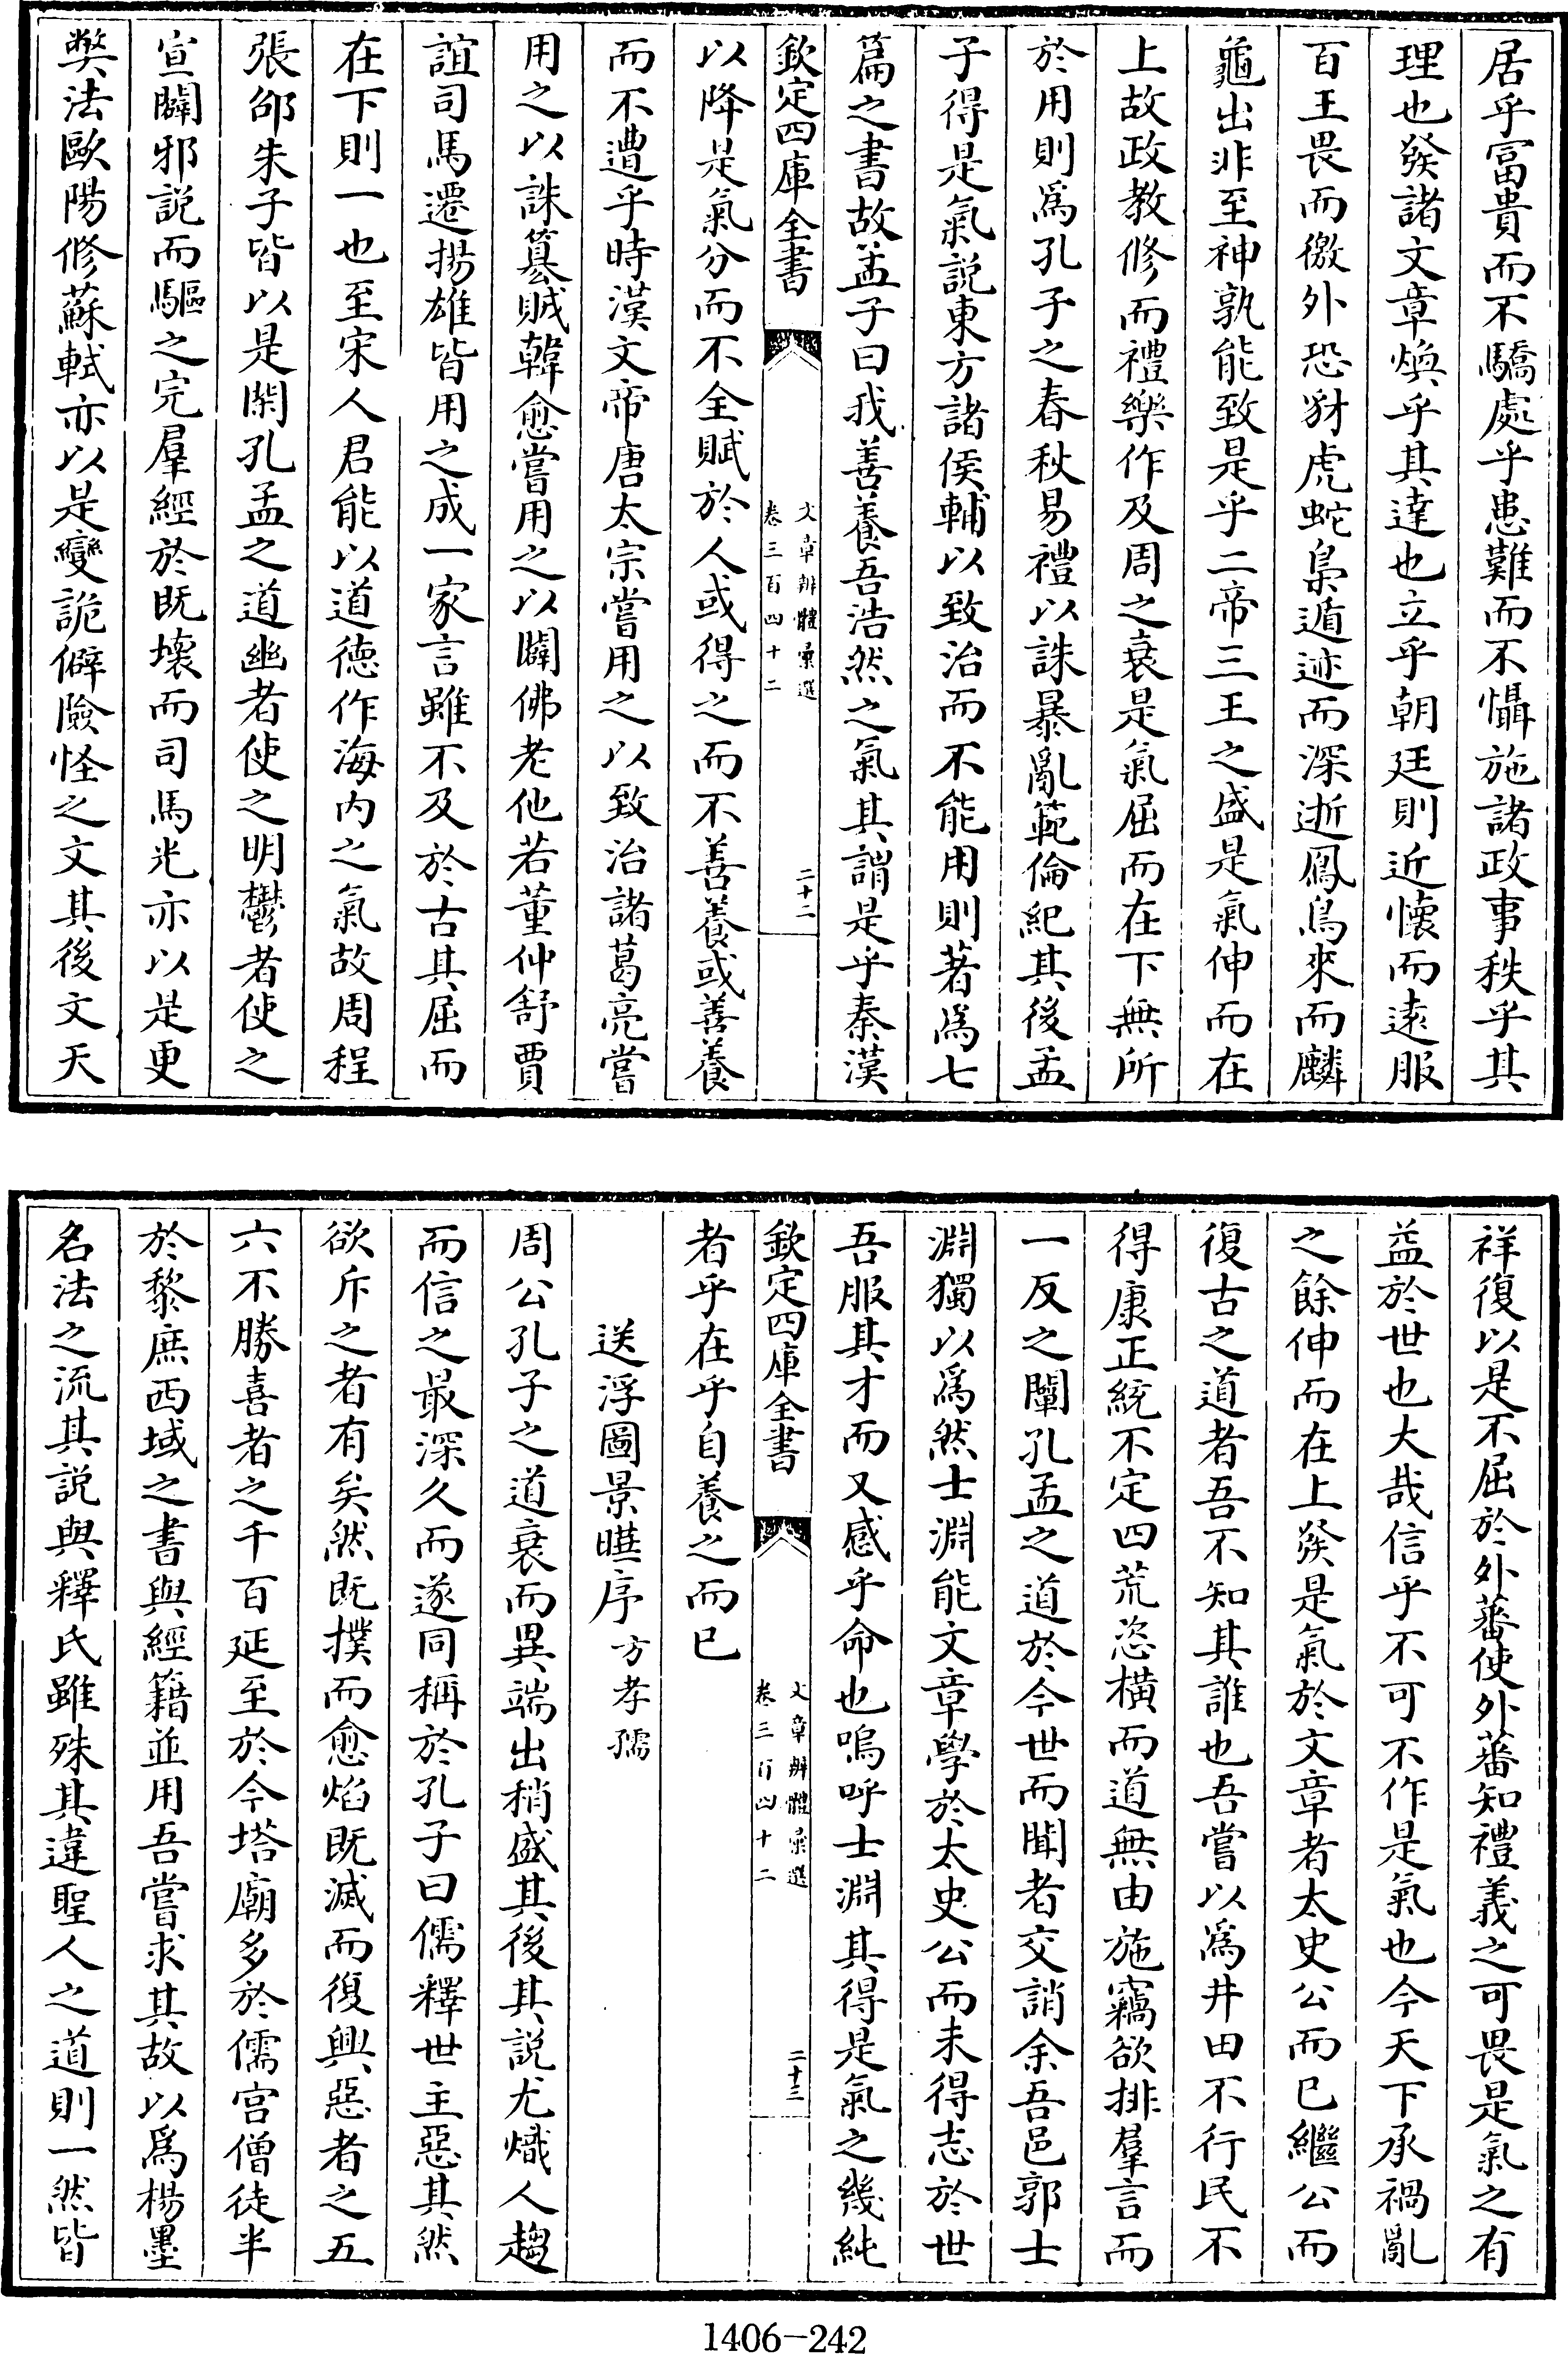 居乎冨貴而不驕處乎患難而不懾施諸政事秩乎其
理也發諸文章煥乎其達也立乎朝廷則近懷而逺服
百王畏而徼外恐豺虎蛇梟遁迹而深逝鳳鳥來而麟
龜出非至神孰能致是乎二帝三王之盛是氣伸而在
上故政教修而禮樂作及周之衰是氣屈而在下無所
於用則為孔子之春秋易禮以誅暴亂範倫紀其後孟
子得是氣説東方諸侯輔以致治而不能用則著為七
篇之書故孟子曰我善養吾浩然之氣其謂是乎秦漢
欽定四庫全書
文章辨體彙選
卷三百四十二
二十二
以降是氣分而不全賦於人或得之而不善養或善養
而不遭乎時漢文帝唐太宗嘗用之以致治諸葛亮嘗
用之以誅簒賊韓愈嘗用之以闢佛老他若董仲舒賈
誼司馬遷揚雄皆用之成一家言雖不及於古其屈而
在下則一也至宋人君能以道徳作海内之氣故周程
張邵朱子皆以是閑孔孟之道幽者使之明鬱者使之
宣闢邪説而驅之完羣經於既壊而司馬光亦以是更
弊法歐陽修蘇軾亦以是變詭僻險怪之文其後文天
祥復以是不屈於外蕃使外蕃知禮義之可畏是氣之有
益於世也大哉信乎不可不作是氣也今天下承禍亂
之餘伸而在上發是氣於文章者太史公而已繼公而
復古之道者吾不知其誰也吾嘗以為井田不行民不
得康正統不定四荒恣横而道無由施竊欲排羣言而
一反之闡孔孟之道於今世而聞者交誚余吾邑郭士
淵獨以為然士淵能文章學於太史公而未得志於世
吾服其才而又感乎命也嗚呼士淵其得是氣之幾純
欽定四庫全書
文章辨體彙選
卷三百四十二
二十三
者乎在乎自養之而已
送浮圖景曔序 方孝孺
周公孔子之道衰而異端出稍盛其後其説尤熾人趨
而信之最深久而遂同稱於孔子曰儒釋世主惡其然
欲斥之者有矣然既撲而愈焰既滅而復興惡者之五
六不勝喜者之千百延至於今塔廟多於儒宫僧徒半
於黎庶西域之書與經籍並用吾嘗求其故以為楊墨
名法之流其説與釋氏雖殊其違聖人之道則一然皆
1406-242